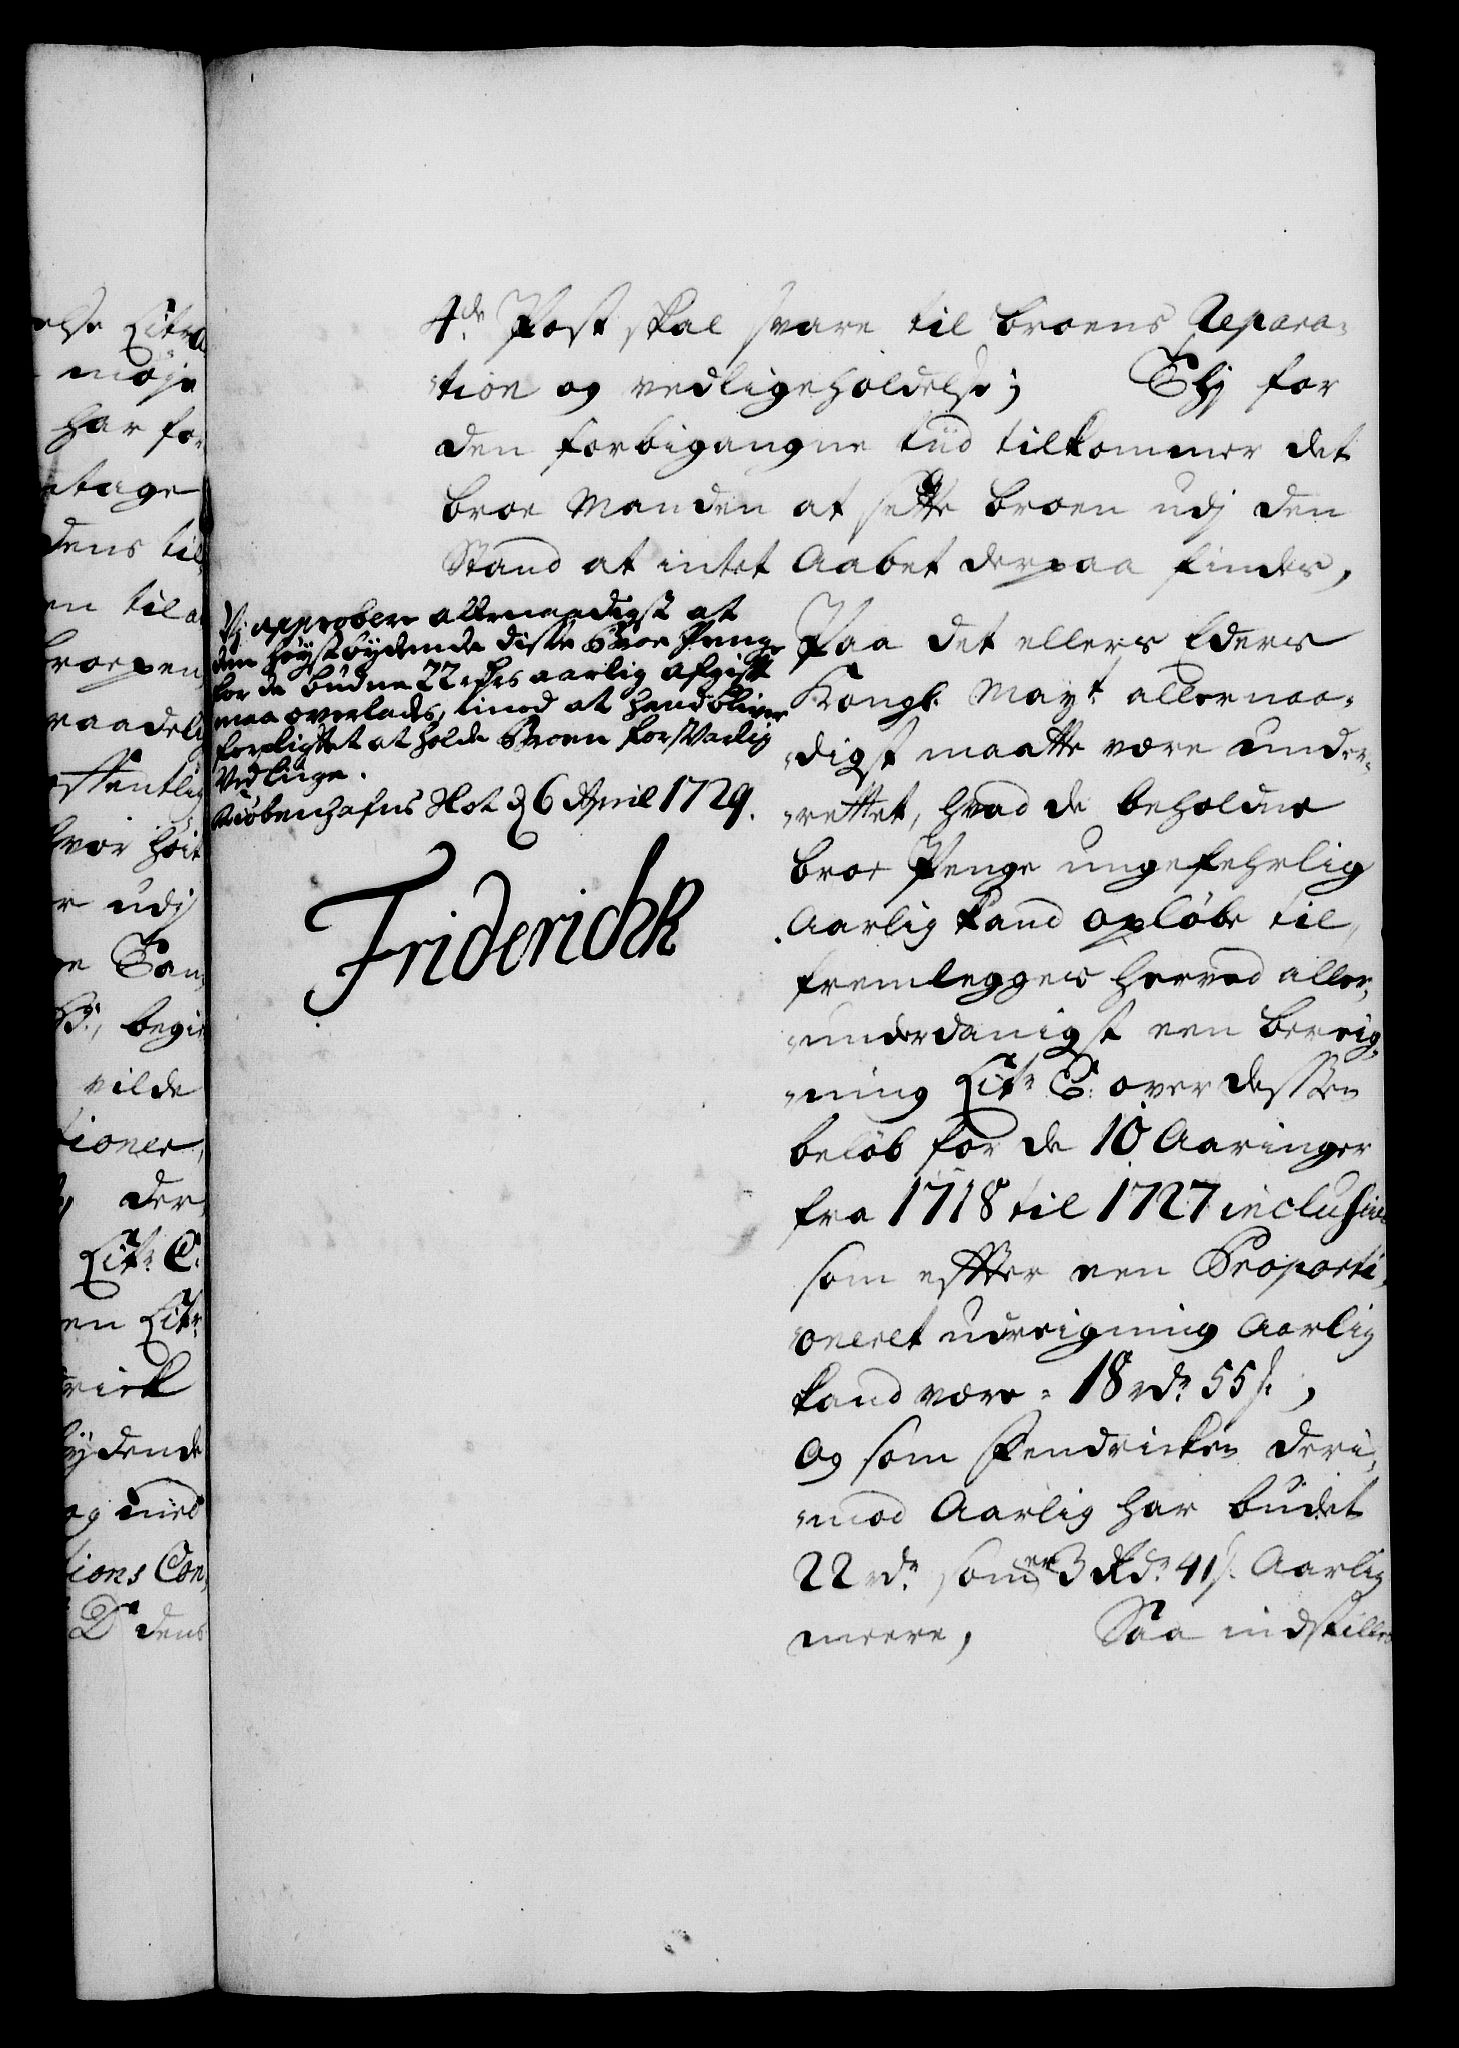 4de Post skal svare til broens Repara-
tion og vedligeholdelse; Thj for
den forbigangne tiid tilkommer det
broe Manden at sette broen udj den
Stand at intet Aabet derpaa findes,
Paa det ellers Eders
Kongl. Mayt allernaa-
digst maatte være under-
rettet, hvad de beholdne
broe Penge ungefehrlig
Aarlig kand opløbe til,
fremlegges herved aller-
underdanigst een bereig-
ning Litr E. over dessen
beløb for de 10 Aaringer
fra 1718 til 1727 inclusive
som effter een Proporti-
oneret udreigning Aarlig
kand være 18 rdr 55 s,
Og som Fendricken deri-
mod Aarlig har büdet
22 rdr som er 3 Rdr 41 s. Aarlig
meere, Saa indstilles
Vj approbere allernaadigst at
den høystbydende diste Broe Penge
for de büdne 22 rdrs aarlig afgift
maa overlades, imod at hand bliver
forpligtet at holde Broen forsvarlig
Vedlige.
Kiøbenhafns Slot d 6 April 1729.
Friderich R
else Litr A
møje
har for
tage
dens til
en til a
broepen
raadel
ffentlig
hvor høit
r udj
e San
begi
vilde
tioner,
der
Litr C.
en Litr
rick
bydende
og med
tions Con
D dens